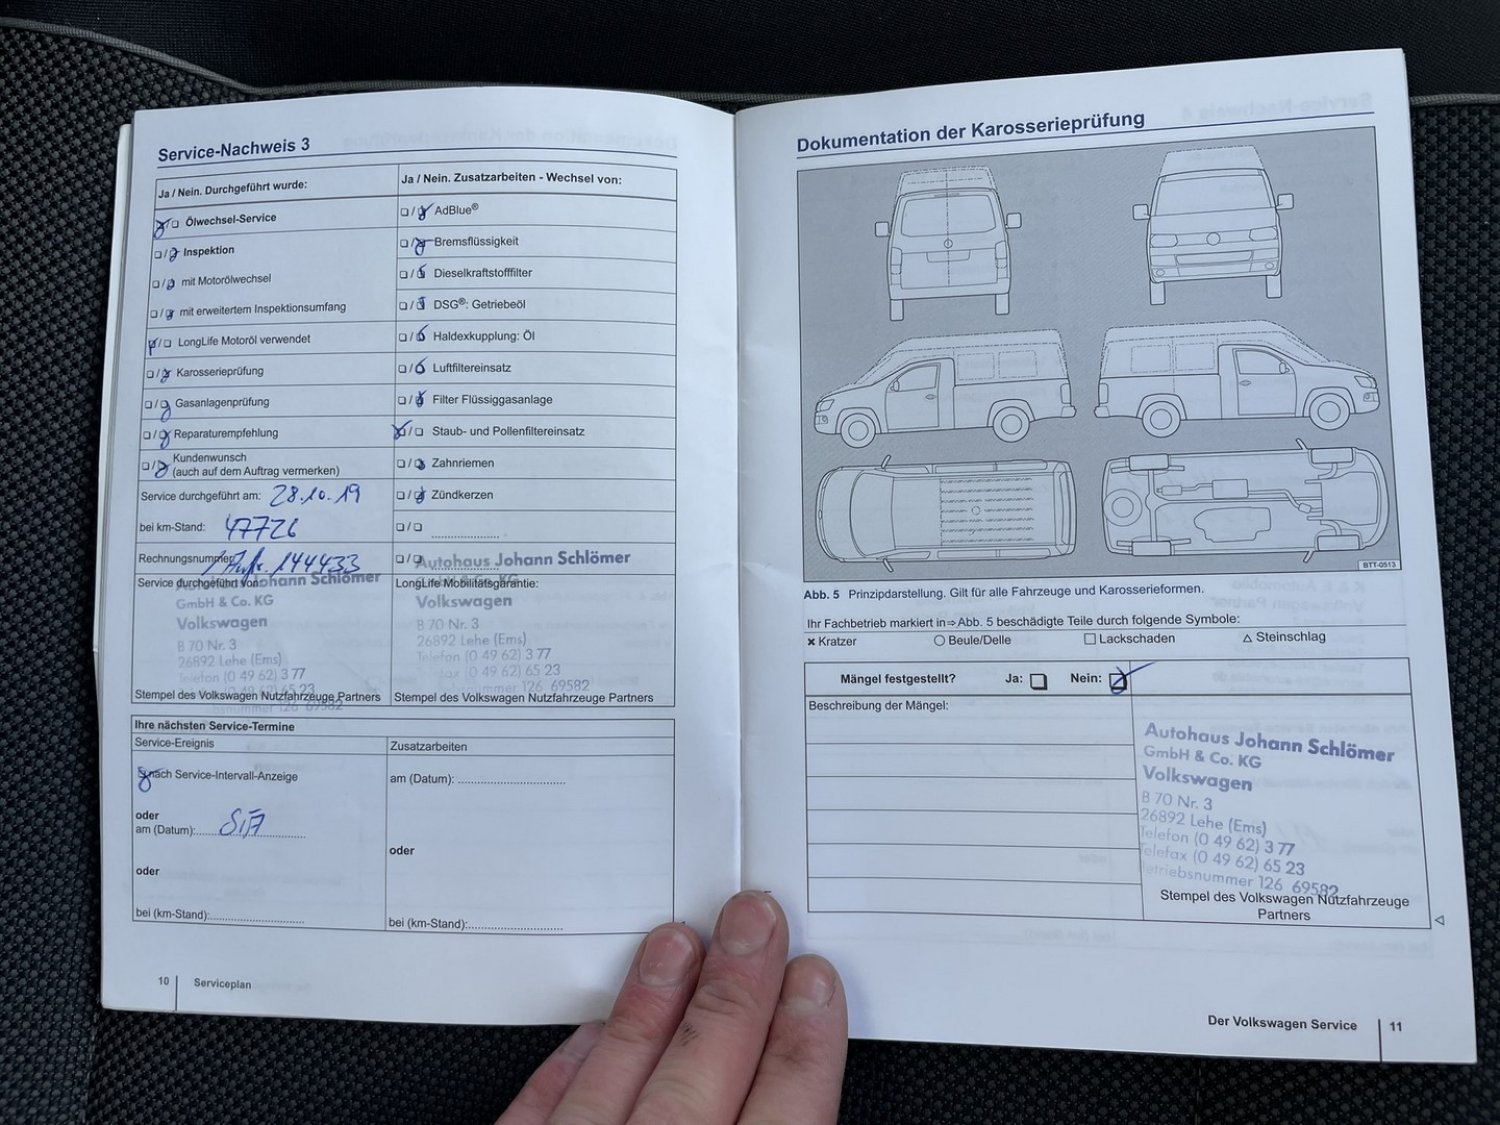 Service-Nachweis 3
Ja / Nein. Durchgeführt wurde:
Ölwechsel-Service
Inspektion
mit Motorölwechsel
mit erweitertem Inspektionsumfang
LongLife Motoröl verwendet
Karosserieprüfung
Gasanlagenprüfung
Reparaturempfehlung
Kundenwunsch
(auch auf dem Auftrag vermerken)
Service durchgeführt am: 28.10.19
bei km-Stand: 47726
Rechnungsnummer: 144433
Service durchgeführt von:
Johann Schlömer
GmbH & Co. KG
Volkswagen
B 70 Nr. 3
26892 Lehe (Ems)
Telefon (0 49 62) 3 77
65 23
126 69582
Stempel des Volkswagen Nutzfahrzeuge Partners
Ja / Nein. Zusatzarbeiten - Wechsel von:
AdBlue®
Bremsflüssigkeit
Dieselkraftstofffilter
DSG®: Getriebeöl
Haldexkupplung: Öl
Luftfiltereinsatz
Filter Flüssiggasanlage
Staub- und Pollenfiltereinsatz
Zahnriemen
Zündkerzen
Autohaus Johann Schlömer
LongLife Mobilitätsgarantie:
& Co. KG
Volkswagen
B 70 Nr. 3
26892 Lehe (Ems)
Telefon (0 49 62) 3 77
(0 49 62) 65 23
126 69582
Stempel des Volkswagen Nutzfahrzeuge Partners
Ihre nächsten Service-Termine
Service-Ereignis
nach Service-Intervall-Anzeige
oder
am (Datum):
oder
bei (km-Stand):
Zusatzarbeiten
am (Datum):
oder
bei (km-Stand):
10 Serviceplan
Dokumentation der Karosserieprüfung
BTT-0513
Abb. 5 Prinzipdarstellung. Gilt für alle Fahrzeuge und Karosserieformen.
Ihr Fachbetrieb markiert in ⇒ Abb. 5 beschädigte Teile durch folgende Symbole:
× Kratzer ○ Beule/Delle □ Lackschaden △ Steinschlag
Mängel festgestellt? Ja: Nein:
Beschreibung der Mängel:
Autohaus Johann Schlömer
GmbH & Co. KG
Volkswagen
B 70 Nr. 3
26892 Lehe (Ems)
Telefon (0 49 62) 3 77
Telefax (0 49 62) 65 23
Betriebsnummer 126 69582
Stempel des Volkswagen Nutzfahrzeuge
Partners
Der Volkswagen Service 11